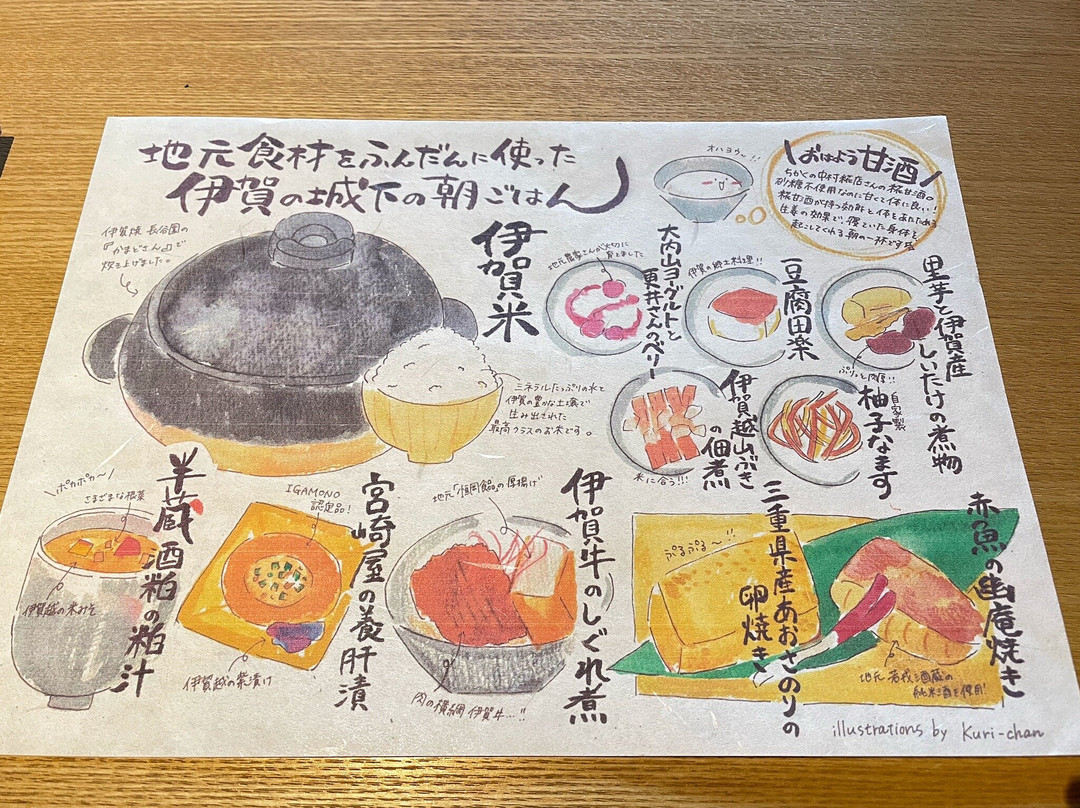 地元食材をふんだんに使った
伊賀の城下の朝ごはん
オハヨウ〜!!
おはよう甘酒
ちかくの中村糀店さんの糀甘酒。
砂糖不使用なのに甘くて体に良い!
糀甘酒が持つ効能と体をあたためる
生姜の効果で、寝ていた身体を
起こしてくれる朝の一杯です
伊賀焼 長谷園の
『かまどさん』で
炊き上げました。
伊賀米
ミネラルたっぷりの水と
伊賀の豊かな土壌で
生み出された
最高クラスのお米です。
大内山ヨーグルトと
更井さんのベリー
地元農家さんが大切に
育てました
豆腐田楽
伊賀の郷土料理!!
里芋と伊賀産
しいたけの煮物
ぷりっと肉厚!!
伊賀越山ぶき
の佃煮
米に合う!!!
自家製
柚子なます
半蔵酒粕の粕汁
ポカポカ〜
さまざまな根菜
伊賀越の米みそ
宮崎屋の養肝漬
IGAMONO
認定品!
伊賀越の紫漬け
伊賀牛のしぐれ煮
地元「恒岡食品」の厚揚げ
肉の横綱 伊賀牛…!!
三重県産あおさのりの
卵焼き
ぷるぷる〜!!
赤魚の幽庵焼き
地元 若戎酒蔵の
純米酒を使用!
illustrations by Kuri-chan